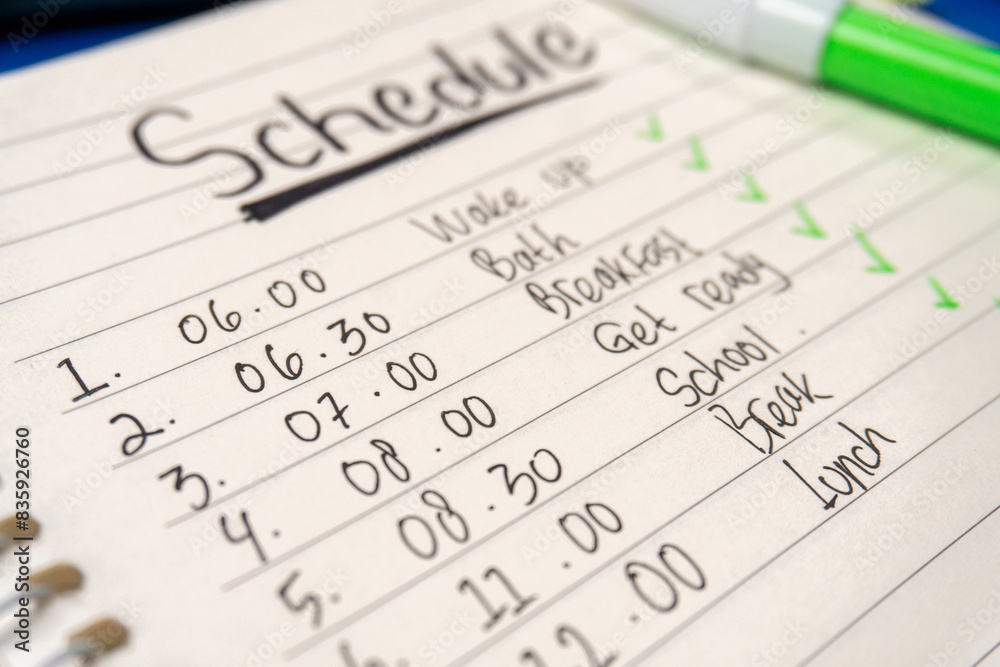 Schedule
1. 06.00 Wake up
2. 06.30 Bath
3. 07.00 Breakfast
4. 08.00 Get ready
5. 08.30 School.
11.00 Break
12.00 Lunch
Adobe Stock | #835926760